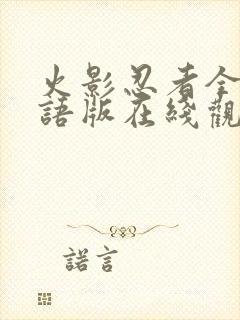 火影忍者全
語版在綫觀
諾言